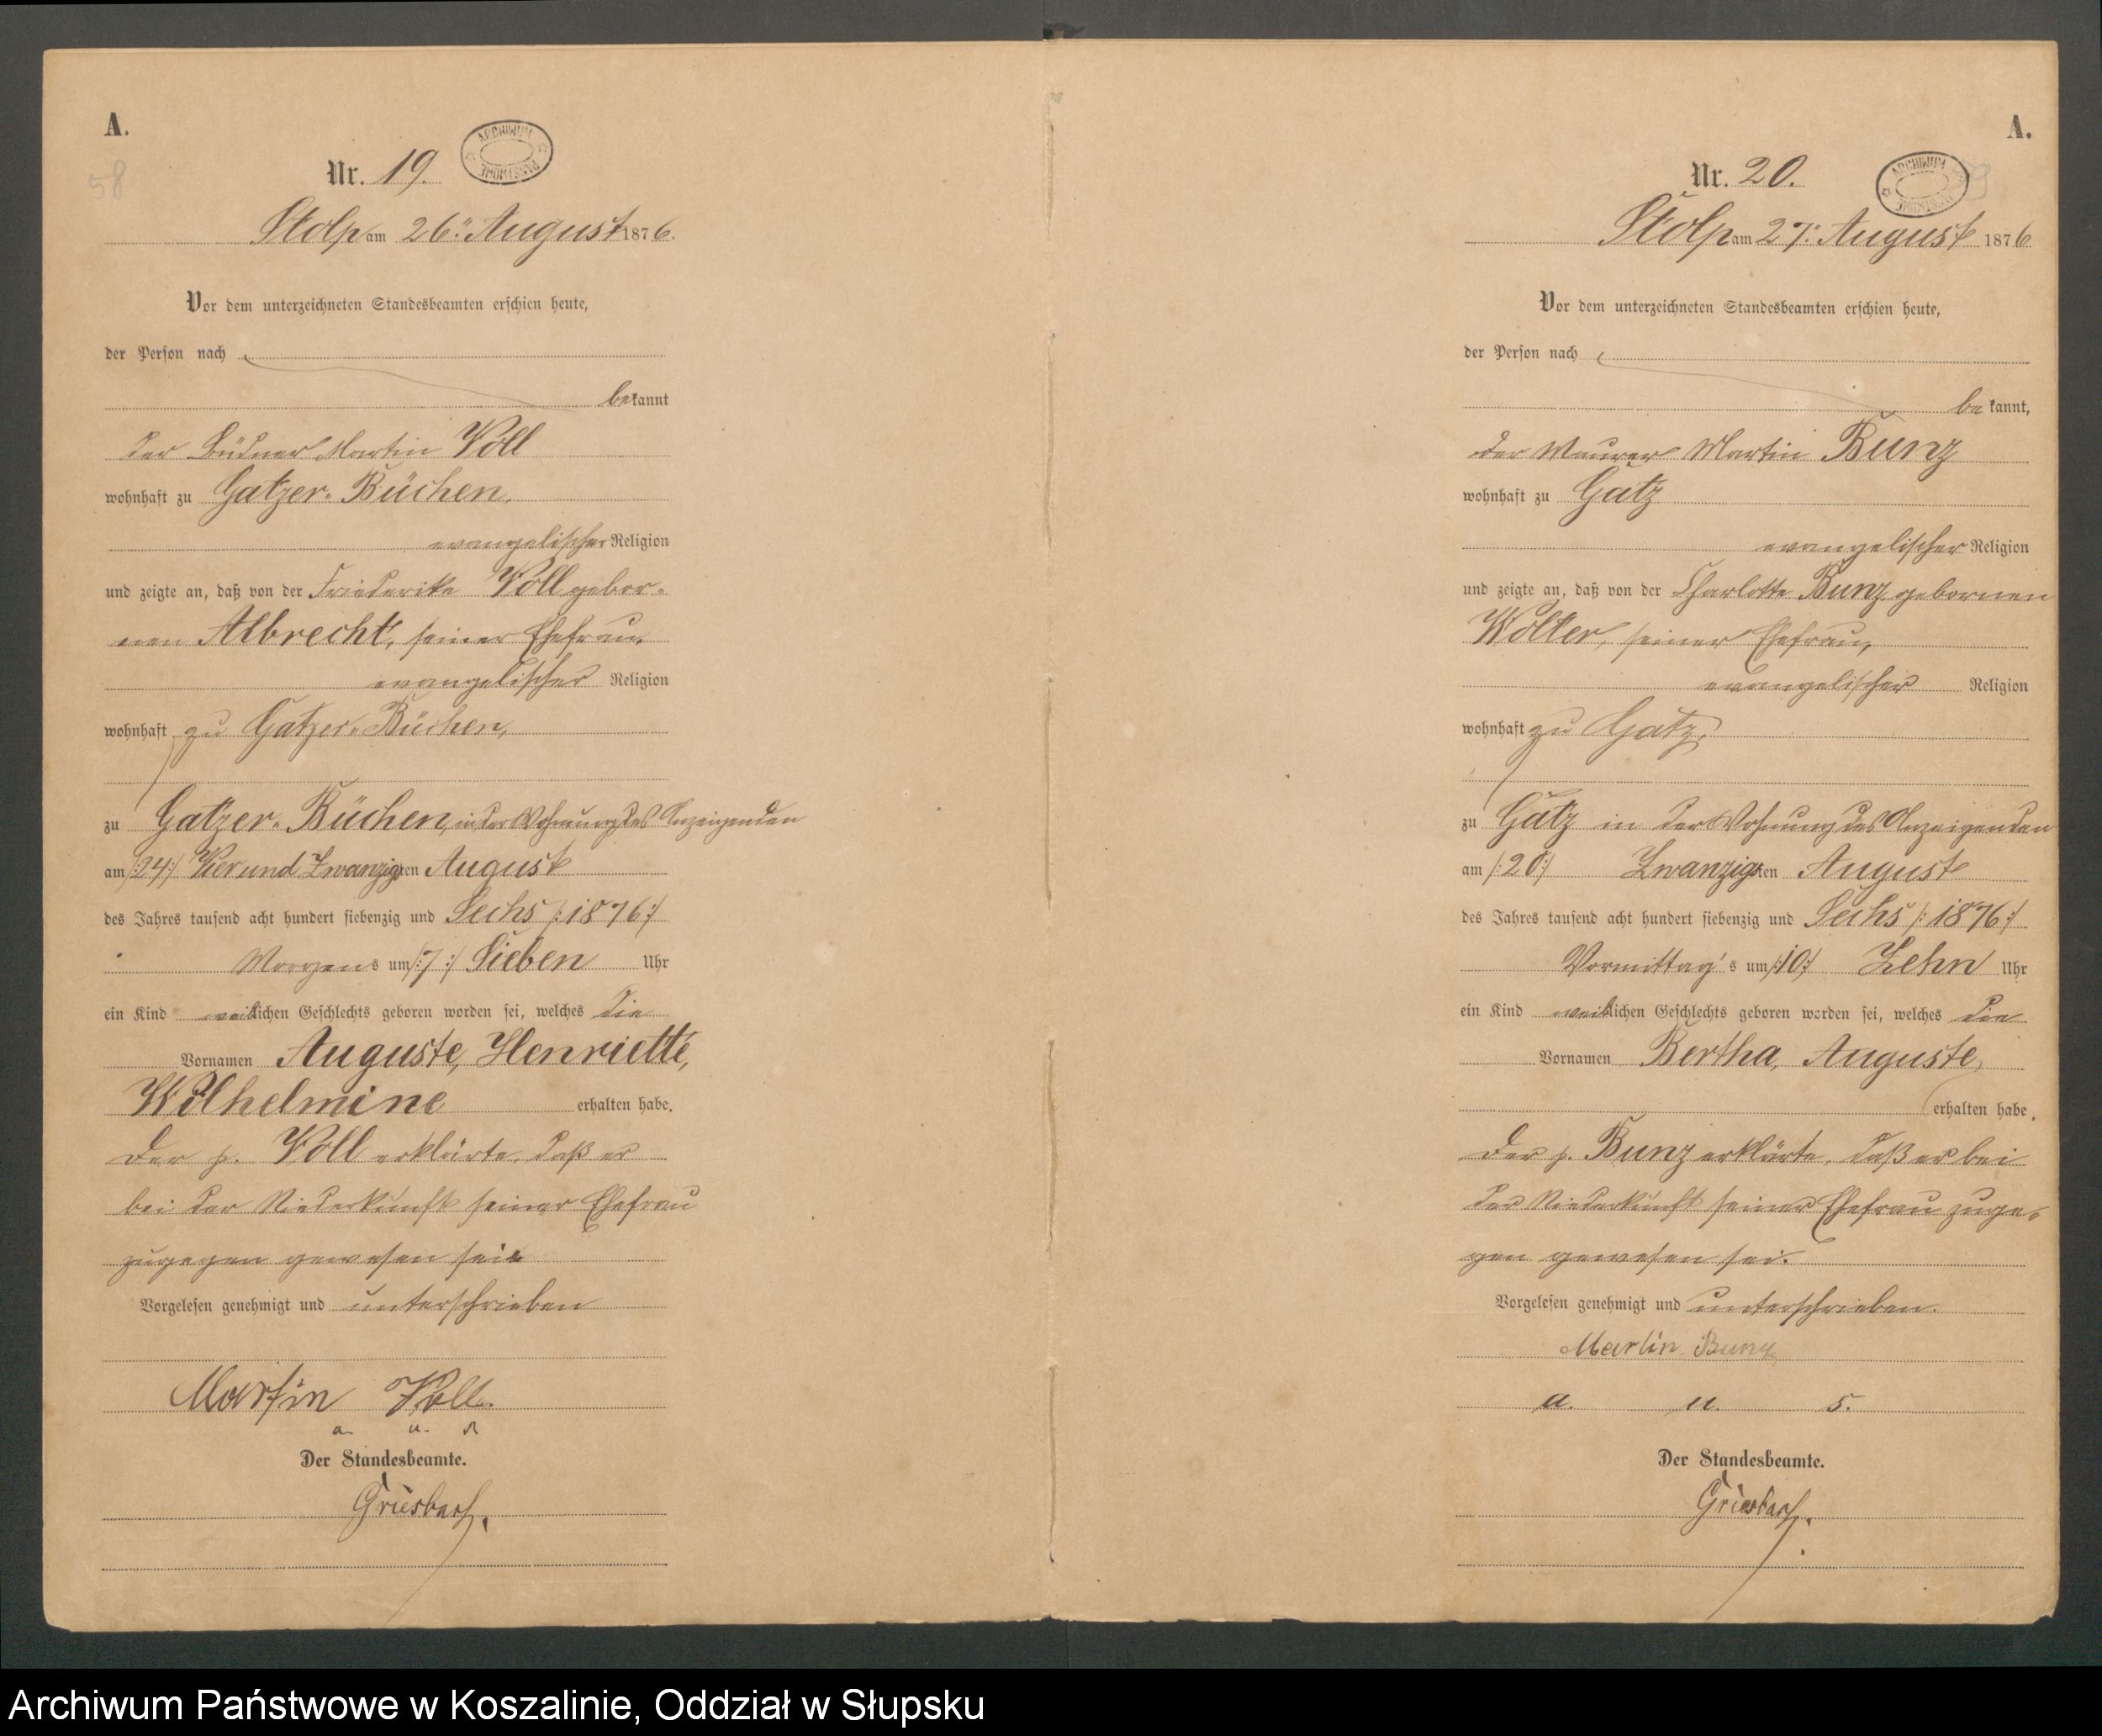 A.
58
Nr. 19.
ARCHIWUM PAŃSTWOWE
Stolp am 26ten August 1876.
Vor dem unterzeichneten Standesbeamten erschien heute,
der Person nach
bekannt
der Büdner Martin Voll
wohnhaft zu Gatzer-Büchen,
evangelischer Religion
und zeigte an, daß von der Friederike Voll gebor-
nen Albrecht, seiner Ehefrau,
evangelischer Religion
wohnhaft zu Gatzer-Büchen,
zu Gatzer-Büchen, in der Wohnung des Anzeigenden
am /:24:/ Vier und Zwanzigsten August
des Jahres tausend acht hundert siebenzig und Sechs /:1876:/
Morgens um /:7:/ Sieben Uhr
ein Kind weiblichen Geschlechts geboren worden sei, welches die
Vornamen Auguste, Henriette,
Wilhelmine erhalten habe.
Der p. Voll erklärte, daß er
bei der Niederkunft seiner Ehefrau
zugegen gewesen sei.
Vorgelesen genehmigt und unterschrieben
Martin Voll.
a. u. s
Der Standesbeamte.
Griesbach.
A.
Nr. 20.
ARCHIWUM PAŃSTWOWE
Stolp am 27. August 1876
Vor dem unterzeichneten Standesbeamten erschien heute,
der Person nach
bekannt,
der Maurer Martin Bunz
wohnhaft zu Gatz
evangelischer Religion
und zeigte an, daß von der Charlotte Bunz gebornen
Wolter, seiner Ehefrau,
evangelischer Religion
wohnhaft zu Gatz,
zu Gatz in der Wohnung des Anzeigenden
am /:20:/ Zwanzigsten August
des Jahres tausend acht hundert siebenzig und Sechs /:1876:/
Vormittag's um /:10:/ Zehn Uhr
ein Kind weiblichen Geschlechts geboren worden sei, welches die
Vornamen Bertha, Auguste,
erhalten habe.
Der p. Bunz erklärte, daß er bei
der Niederkunft seiner Ehefrau zuge-
gen gewesen sei.
Vorgelesen genehmigt und unterschrieben.
Martin Bunz
a. u. s.
Der Standesbeamte.
Griesbach.
Archiwum Państwowe w Koszalinie, Oddział w Słupsku